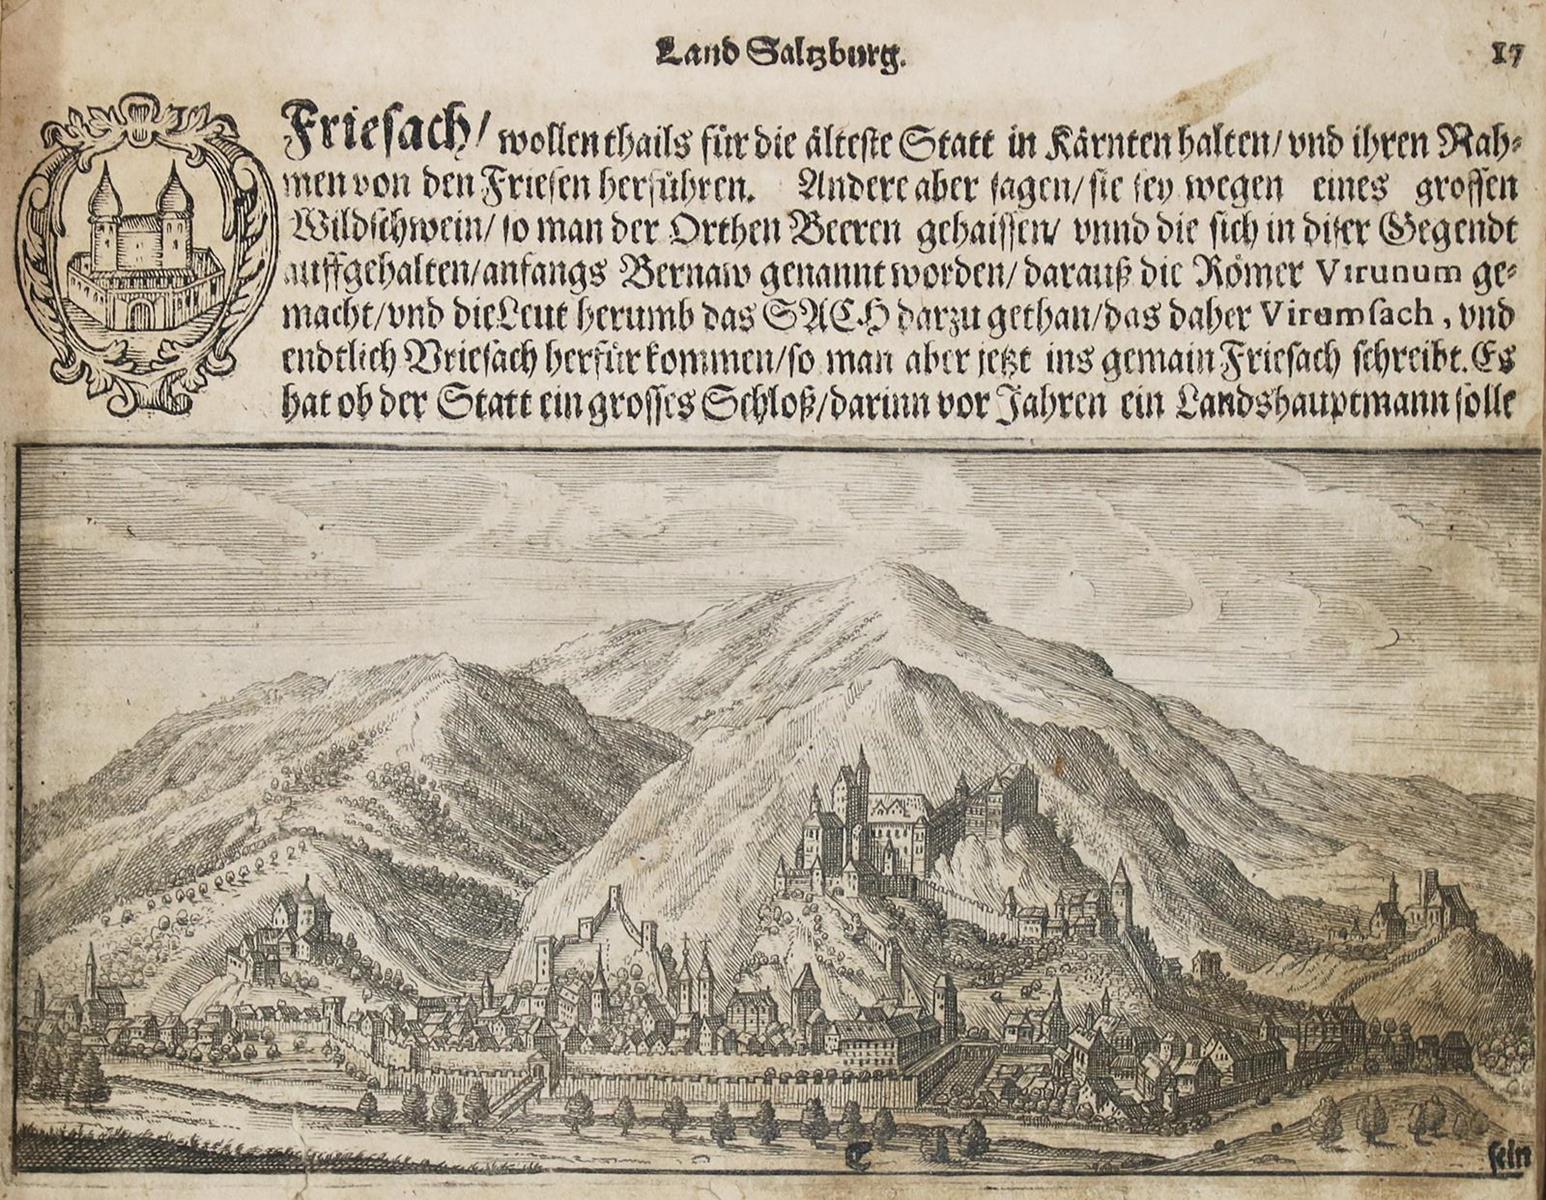 Land Saltzburg.
17
Friesach/ wollen thails für die älteste Statt in Kärnten halten/ vnd ihren Nah-
men von den Friesen herführen. Andere aber sagen/ sie sey wegen eines grossen
Wildschwein/ so man der Orthen Beeren gehaissen/ vnnd die sich in diser Gegendt
auffgehalten/ anfangs Bernaw genannt worden/ darauß die Römer Virunum ge-
macht/ vnd die Leut herumb das SACH darzu gethan/ das daher Virumsach, vnd
endtlich Vriesach herfür kommen/ so man aber jetzt ins gemain Friesach schreibt. Es
hat ob der Statt ein grosses Schloß/ darinn vor Jahren ein Landshauptmann solle
C
sein